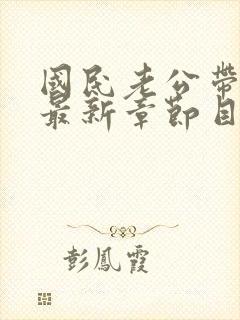 國民老公帶
最新章節目
彭鳳霞